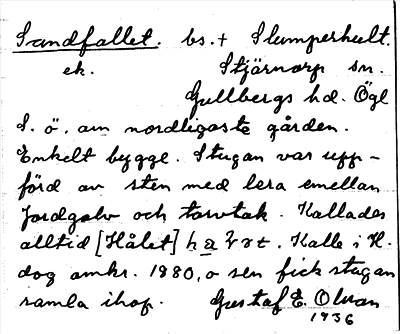 Sandfallet. bs. + Slumperhult.
ek. Stjärnorp sn.
Gullbergs hd. Ögl
S. ö. om nordligaste gården.
Enkelt bygge. Stugan var upp-
förd av sten med lera emellan
Jordgolv och torvtak. Kallades
alltid [Hålet] . Kalle i H.
dog omkr. 1880, o sen fick stugan
ramla ihop. Gustaf E. Olson
1936